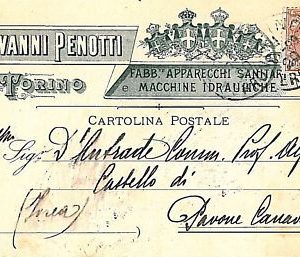 VANNI PENOTTI
TORINO
FABB. APPARECCHI SANITAR
E MACCHINE IDRAULICHE
CARTOLINA POSTALE
Sigr D'Andrade Comm. Prof. Al
Castello di
(Ivrea) Pavone Canav